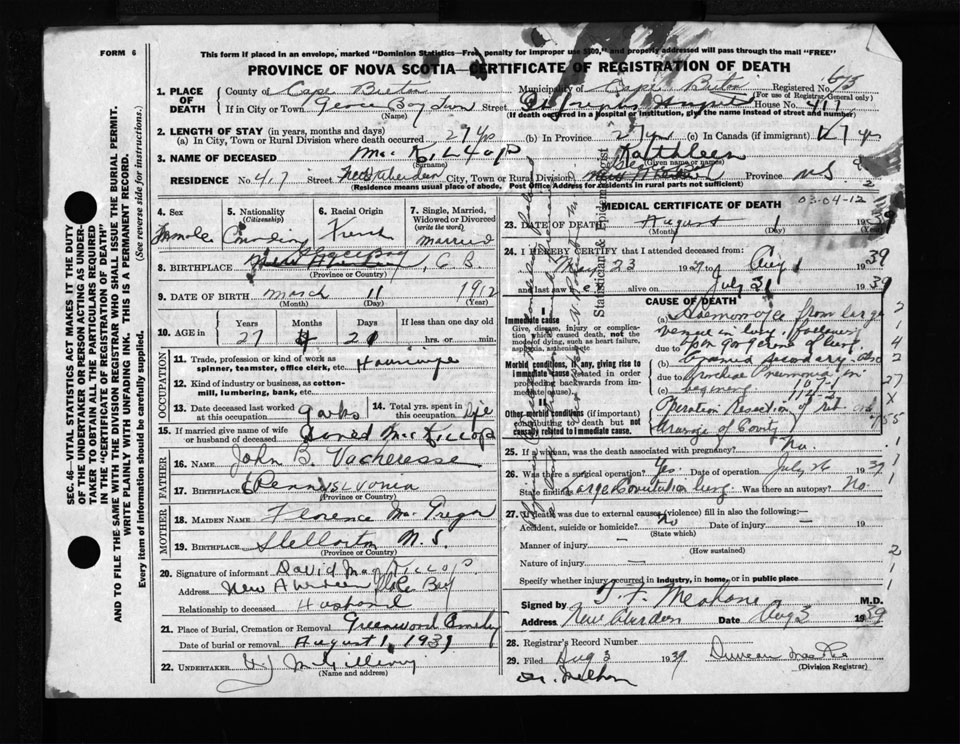 FORM 6
This form if placed in an envelope, marked "Dominion Statistics—Free, penalty for improper use $300," and properly addressed will pass through the mail "FREE"
PROVINCE OF NOVA SCOTIA—CERTIFICATE OF REGISTRATION OF DEATH
1. PLACE OF DEATH County of Cape Breton Municipality of Cape Breton Registered No. 
(For use of Registrar General only)
If in City or Town Glace Bay Town Street St Josephs Hospital House No. 417
(Name) (If death occurred in a hospital or institution, give the name instead of street and number)
2. LENGTH OF STAY (in years, months and days)
(a) In City, Town or Rural Division where death occurred 27 yrs (b) In Province 27 yrs (c) In Canada (if immigrant) 27 yrs
3. NAME OF DECEASED Mac Killop Kathleen
(Surname) (Given name or names)
RESIDENCE No. 417 Street New Aberdeen City, Town or Rural Division Province N.S.
(Residence means usual place of abode. Post Office Address for residents in rural parts not sufficient)
4. Sex
Female
5. Nationality (Citizenship)
Canadian
6. Racial Origin
French
7. Single, Married, Widowed or Divorced (write the word)
Married
8. BIRTHPLACE C. B.
(Province or Country)
9. DATE OF BIRTH March 11 1912
(Month) (Day) (Year)
10. AGE in Years Months Days If less than one day old
27 4 21 hrs. or min.
OCCUPATION
11. Trade, profession or kind of work as spinner, teamster, office clerk, etc. Housewife
12. Kind of industry or business, as cotton-mill, lumbering, bank, etc.
13. Date deceased last worked at this occupation
14. Total yrs. spent in this occupation Life
15. If married give name of wife or husband of deceased David MacKillop
FATHER
16. NAME John B. Vacheresse
17. BIRTHPLACE Pennsylvania
(Province or Country)
MOTHER
18. MAIDEN NAME Florence McGregor
19. BIRTHPLACE Stellarton N.S.
(Province or Country)
20. Signature of informant David MacKillop
Address New Aberdeen Glace Bay
Relationship to deceased Husband
21. Place of Burial, Cremation or Removal Greenwood Cemetery
Date of burial or removal August 1, 1939
22. UNDERTAKER
(Name and address)
MEDICAL CERTIFICATE OF DEATH
03-04-12
23. DATE OF DEATH August 1 1939
(Month) (Day) (Year)
24. I HEREBY CERTIFY that I attended deceased from:
May 23 1939 to Aug 1 1939
and last saw alive on July 31 1939
CAUSE OF DEATH
I
Immediate cause
Give, disease, injury or complication which caused death, not the mode of dying, such as heart failure, asphyxia, asthenia, etc.
(a) Haemorrhage from large
vein in lung. Following
due to gangrene of lung.
Morbid conditions, if any, giving rise to immediate cause (stated in order proceeding backwards from immediate cause).
(b) secondary
due to Bronchial Pneumonia in
(c) beginning 107-1
114-2
II
Other morbid conditions (if important) contributing to death but not causally related to immediate cause.
Operation Resection of rib and
drainage of Cavity
25. If a woman, was the death associated with pregnancy? No.
26. Was there a surgical operation? Yes Date of operation July 26 1939
State findings Large Cavitation lung. Was there an autopsy? No.
27. If death was due to external causes (violence) fill in also the following:—
Accident, suicide or homicide? No Date of injury — 19
(State which)
Manner of injury —
(How sustained)
Nature of injury —
Specify whether injury occurred in industry, in home, or in public place
Signed by M.D.
Address New Aberdeen Date Aug 3 1939
28. Registrar's Record Number
29. Filed Aug 3 1939 Duncan
(Division Registrar)
Statistician & Epidemiologist
SEC. 46—VITAL STATISTICS ACT MAKES IT THE DUTY OF THE UNDERTAKER OR PERSON ACTING AS UNDERTAKER TO OBTAIN ALL THE PARTICULARS REQUIRED IN THE "CERTIFICATE OF REGISTRATION OF DEATH" AND TO FILE THE SAME WITH THE DIVISION REGISTRAR WHO SHALL ISSUE THE BURIAL PERMIT.
WRITE PLAINLY WITH UNFADING INK. THIS IS A PERMANENT RECORD.
Every item of information should be carefully supplied. (See reverse side for instructions.)